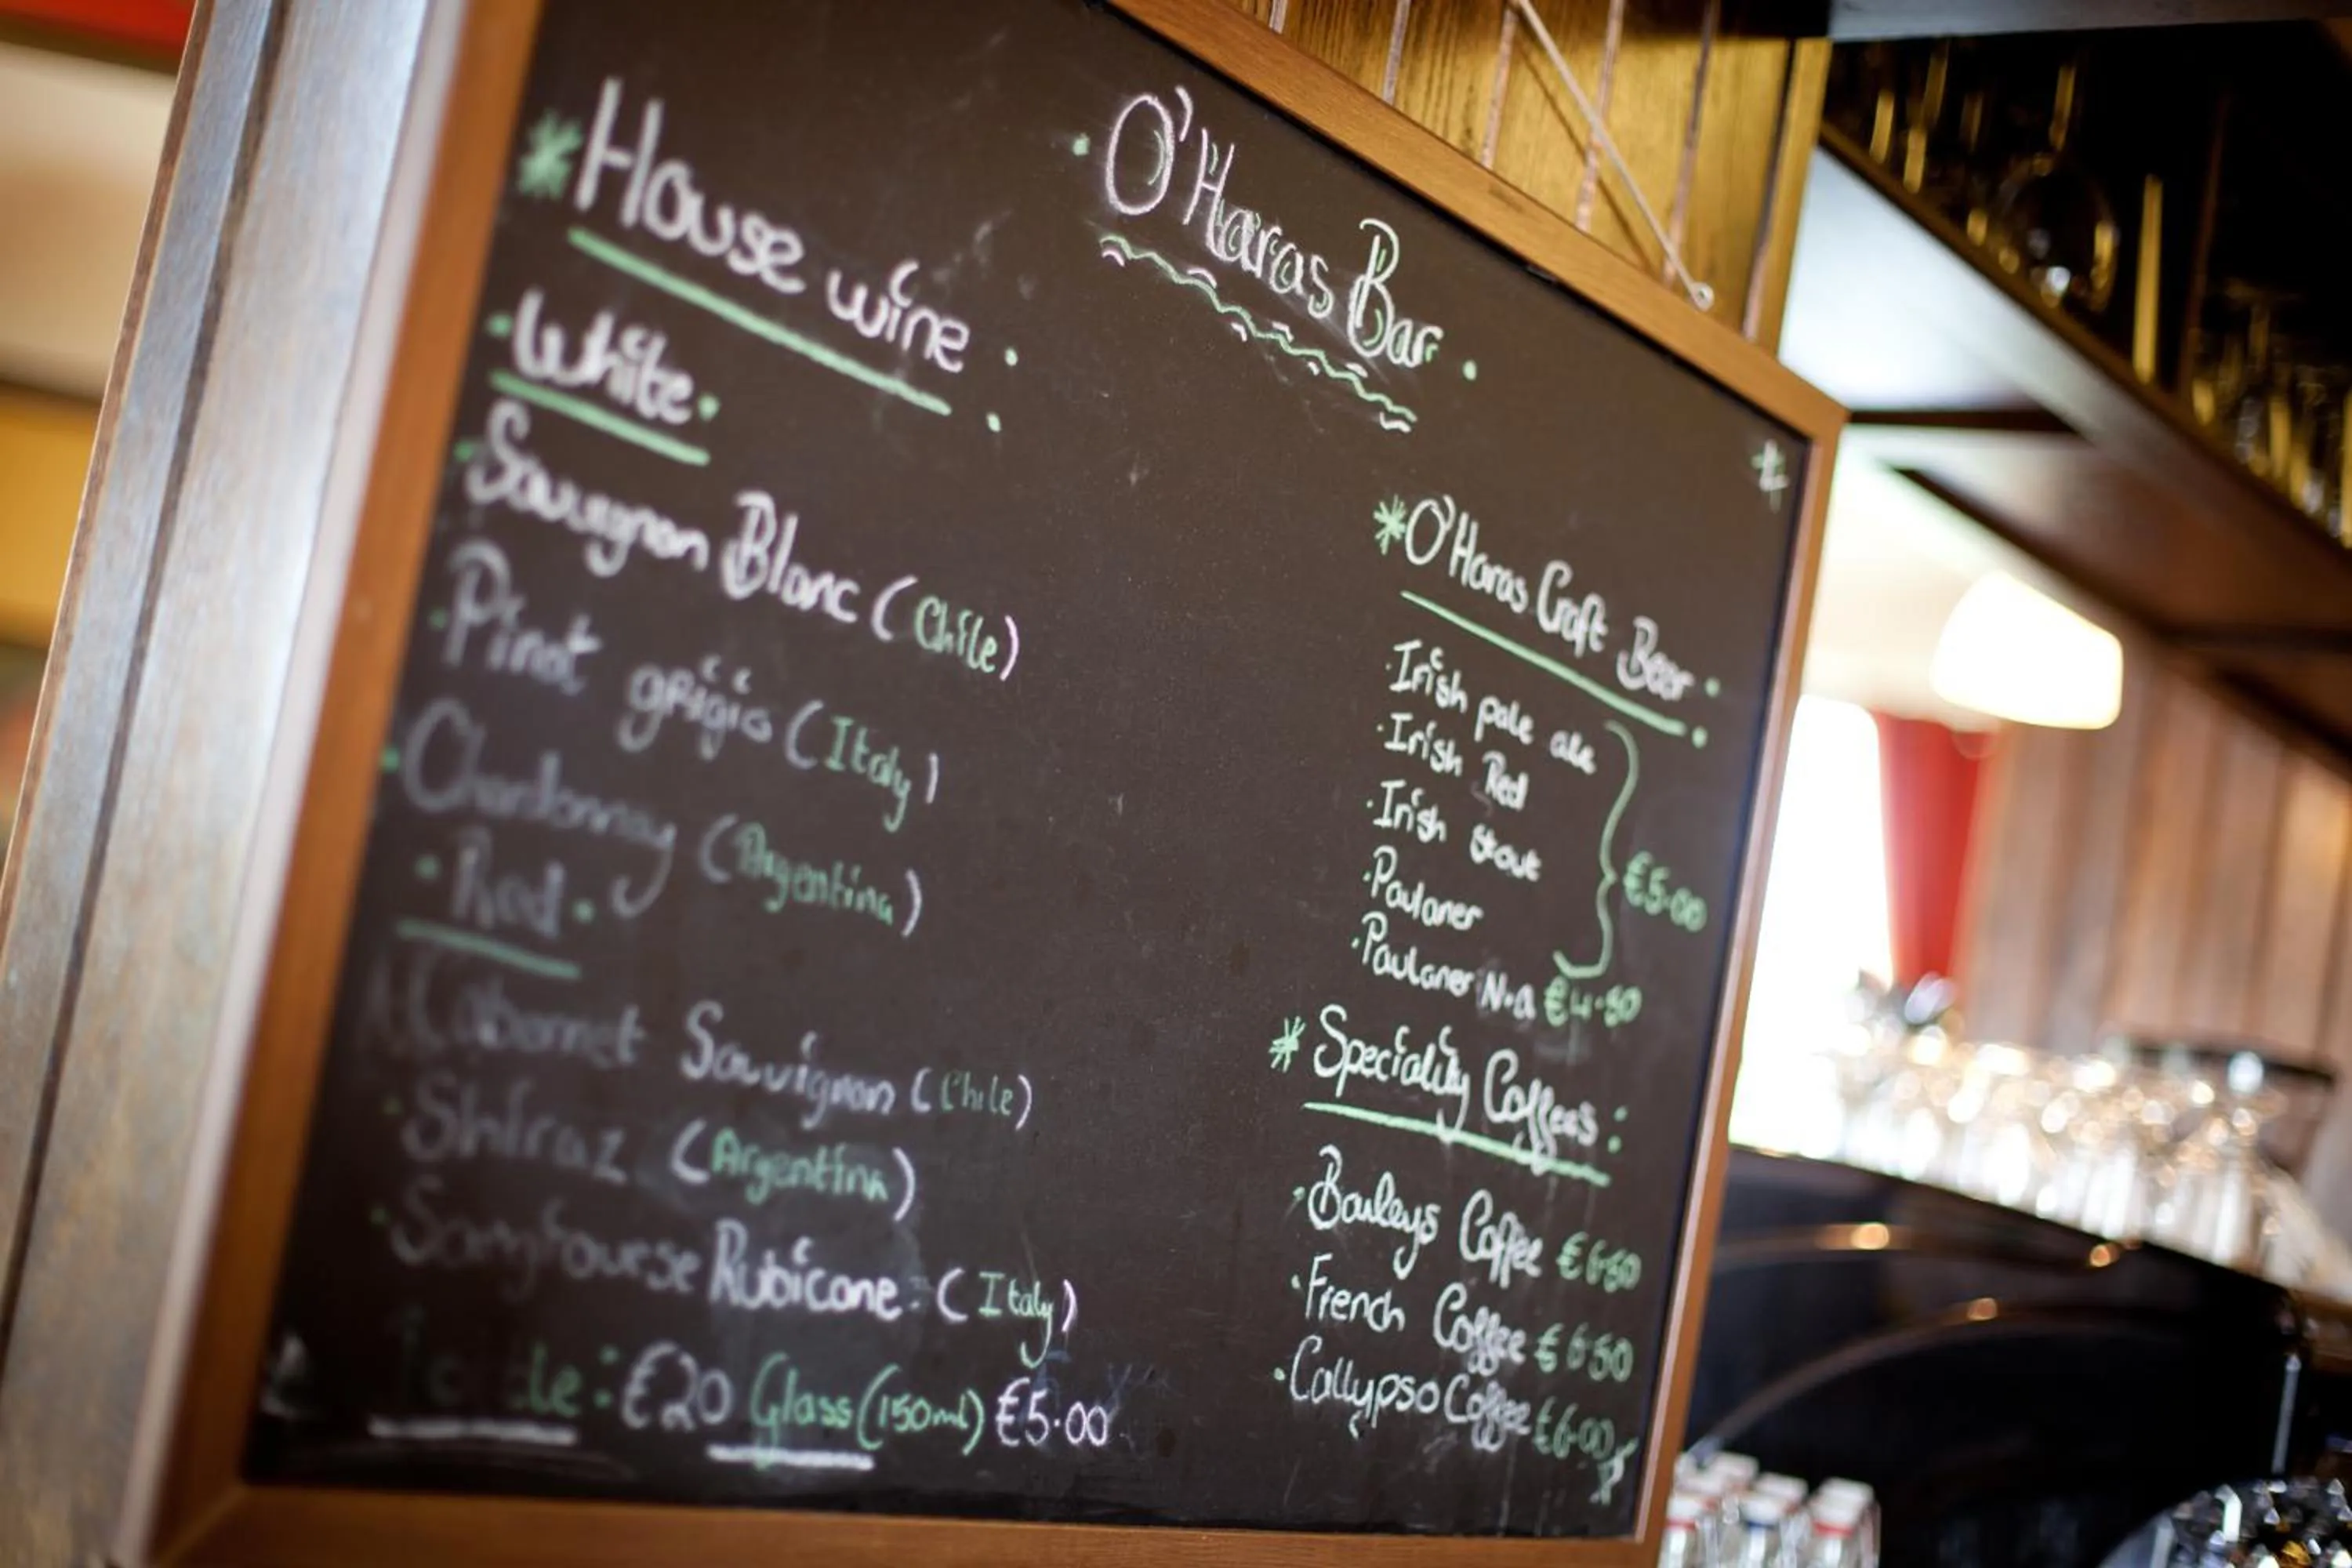 O'Haras Bar
House wine
White
Sauvignon Blanc (Chile)
Pinot grigio (Italy)
Chardonnay (Argentina)
Red
Cabernet Sauvignon (Chile)
Shiraz (Argentina)
Rubicone (Italy)
€20 Glass (150ml) €5.00
O'Haras Craft Beer
Irish pale ale
Irish Red
Irish Stout
Paulaner
€5.00
Paulaner N.A €4.50
Speciality Coffees:
Baileys Coffee €6.50
French Coffee €6.50
Callypso Coffee €6.00